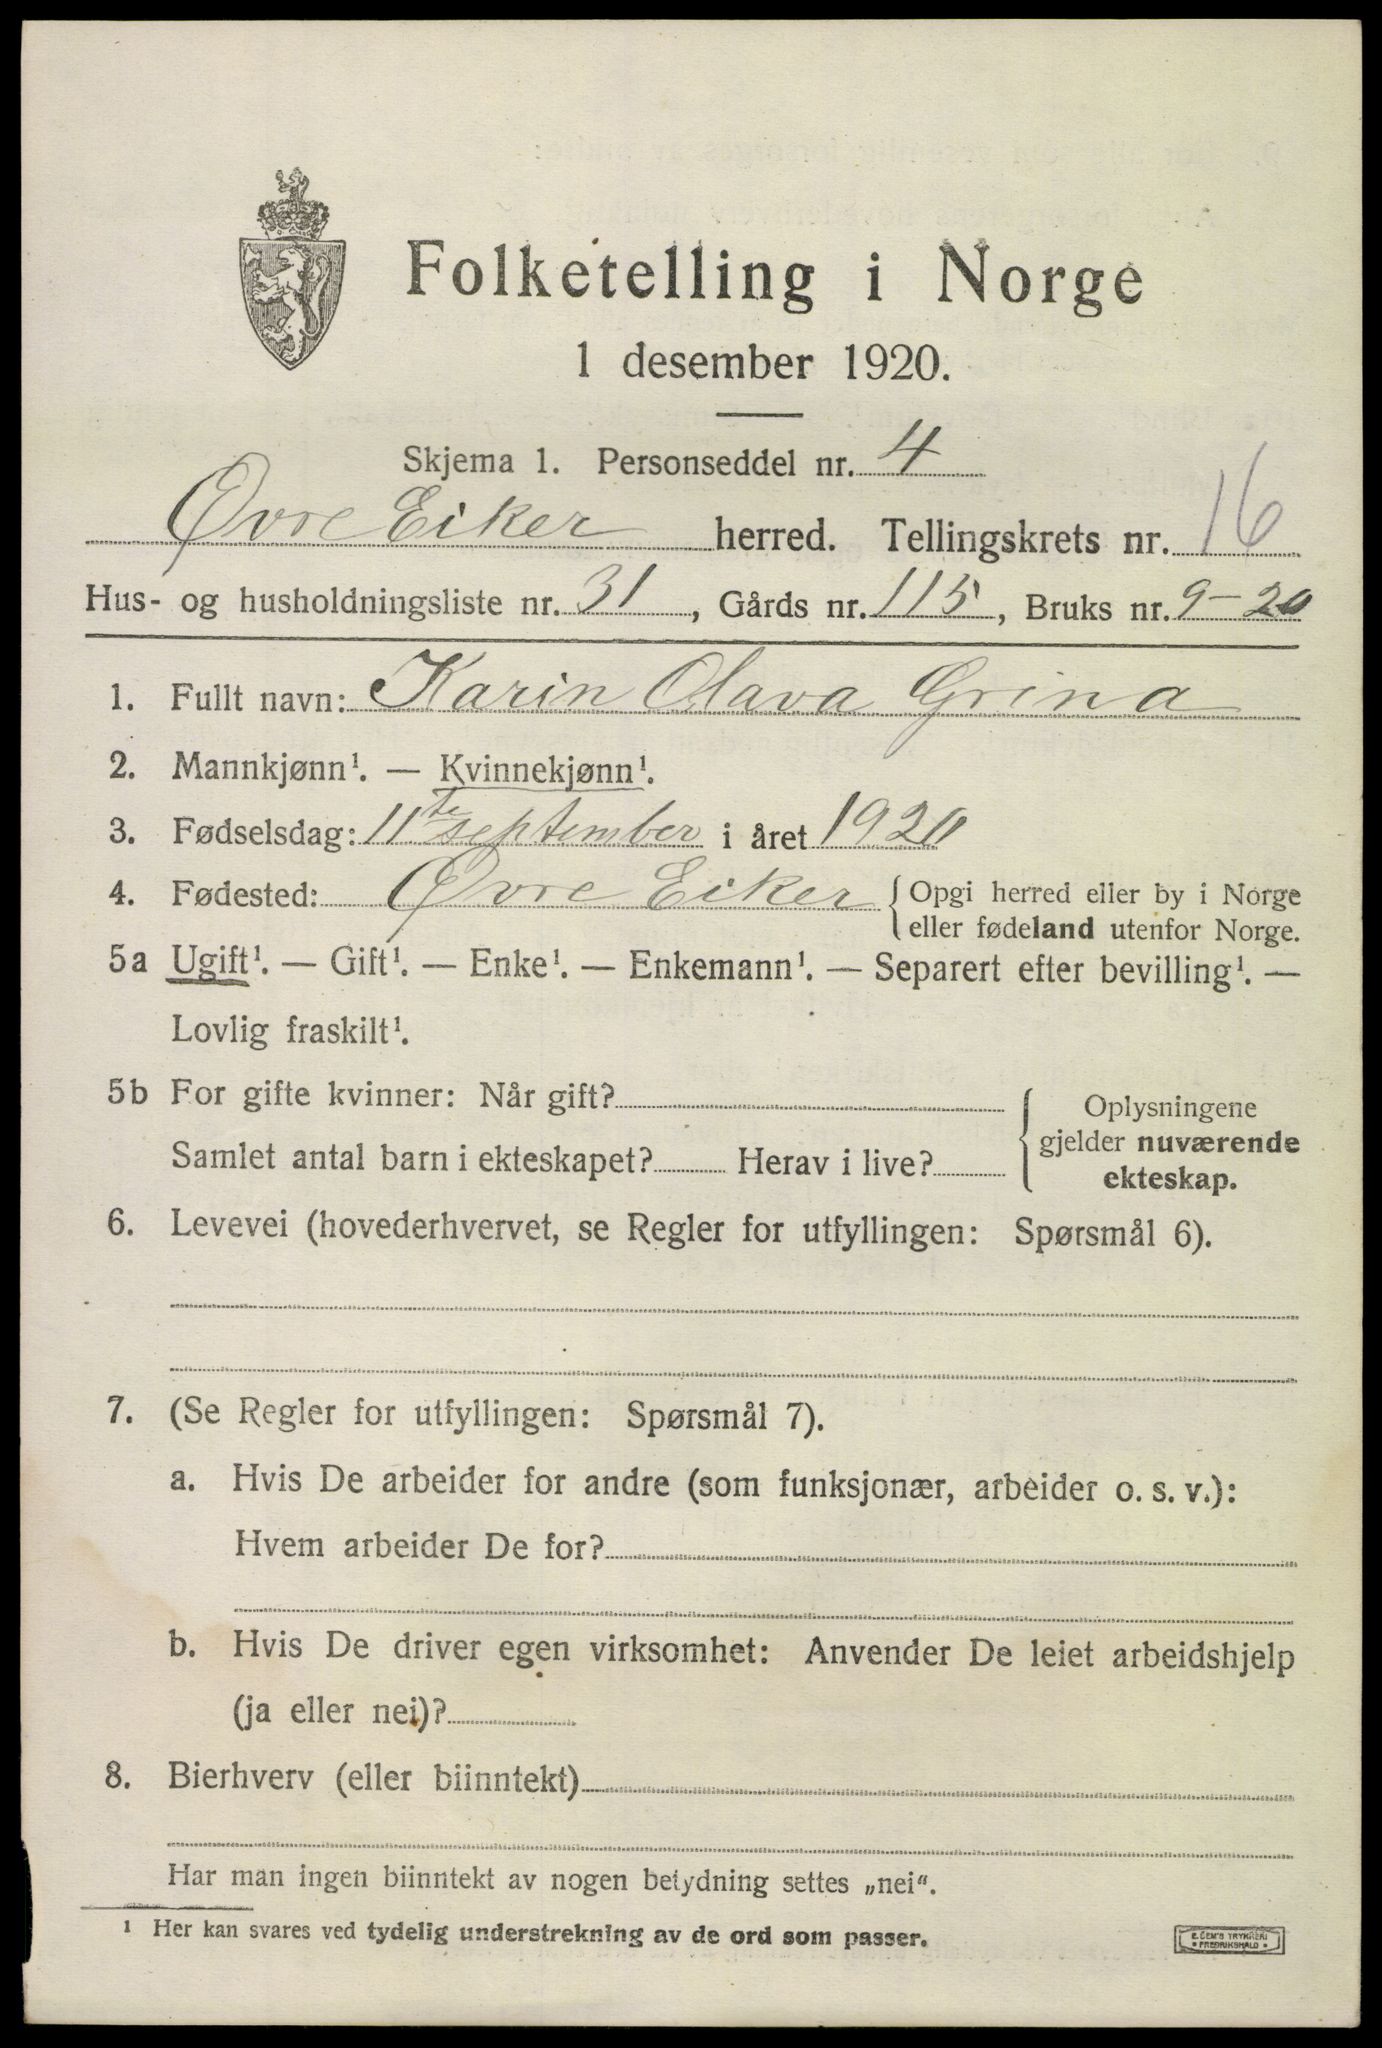 Folketelling i Norge
1 desember 1920.
Skjema 1. Personseddel nr. 4
Øvre Eiker herred. Tellingskrets nr. 16
Hus- og husholdningsliste nr. 31, Gårds nr. 115, Bruks nr. 9-20
1. Fullt navn: Karin Olava Grina
2. Mannkjønn¹. — Kvinnekjønn¹.
3. Fødselsdag: 11te september i året 1920
4. Fødested: Øvre Eiker { Opgi herred eller by i Norge
eller fødeland utenfor Norge.
5a Ugift¹. — Gift¹. — Enke¹. — Enkemann¹. — Separert efter bevilling¹. —
Lovlig fraskilt¹.
5b For gifte kvinner: Når gift?
Samlet antal barn i ekteskapet? Herav i live?
{ Oplysningene
gjelder nuværende
ekteskap.
6. Levevei (hovederhvervet, se Regler for utfyllingen: Spørsmål 6).
7. (Se Regler for utfyllingen: Spørsmål 7).
a. Hvis De arbeider for andre (som funksjonær, arbeider o. s. v.):
Hvem arbeider De for?
b. Hvis De driver egen virksomhet: Anvender De leiet arbeidshjelp
(ja eller nei)?
8. Bierhverv (eller biinntekt)
Har man ingen biinntekt av nogen betydning settes „nei“.
¹ Her kan svares ved tydelig understrekning av de ord som passer.
E. SEM'S TRYKKERI
• FREDRIKSHALD •